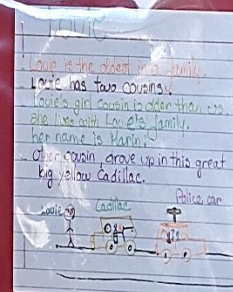 Louie is the oldest in a family.
Louie has two cousins.
Louie's girl cousin is older than
She lives with Louie's family.
her name is Marin.
Other cousin drove up in this great
big yellow Cadillac.
Police car
Louie Cadillac